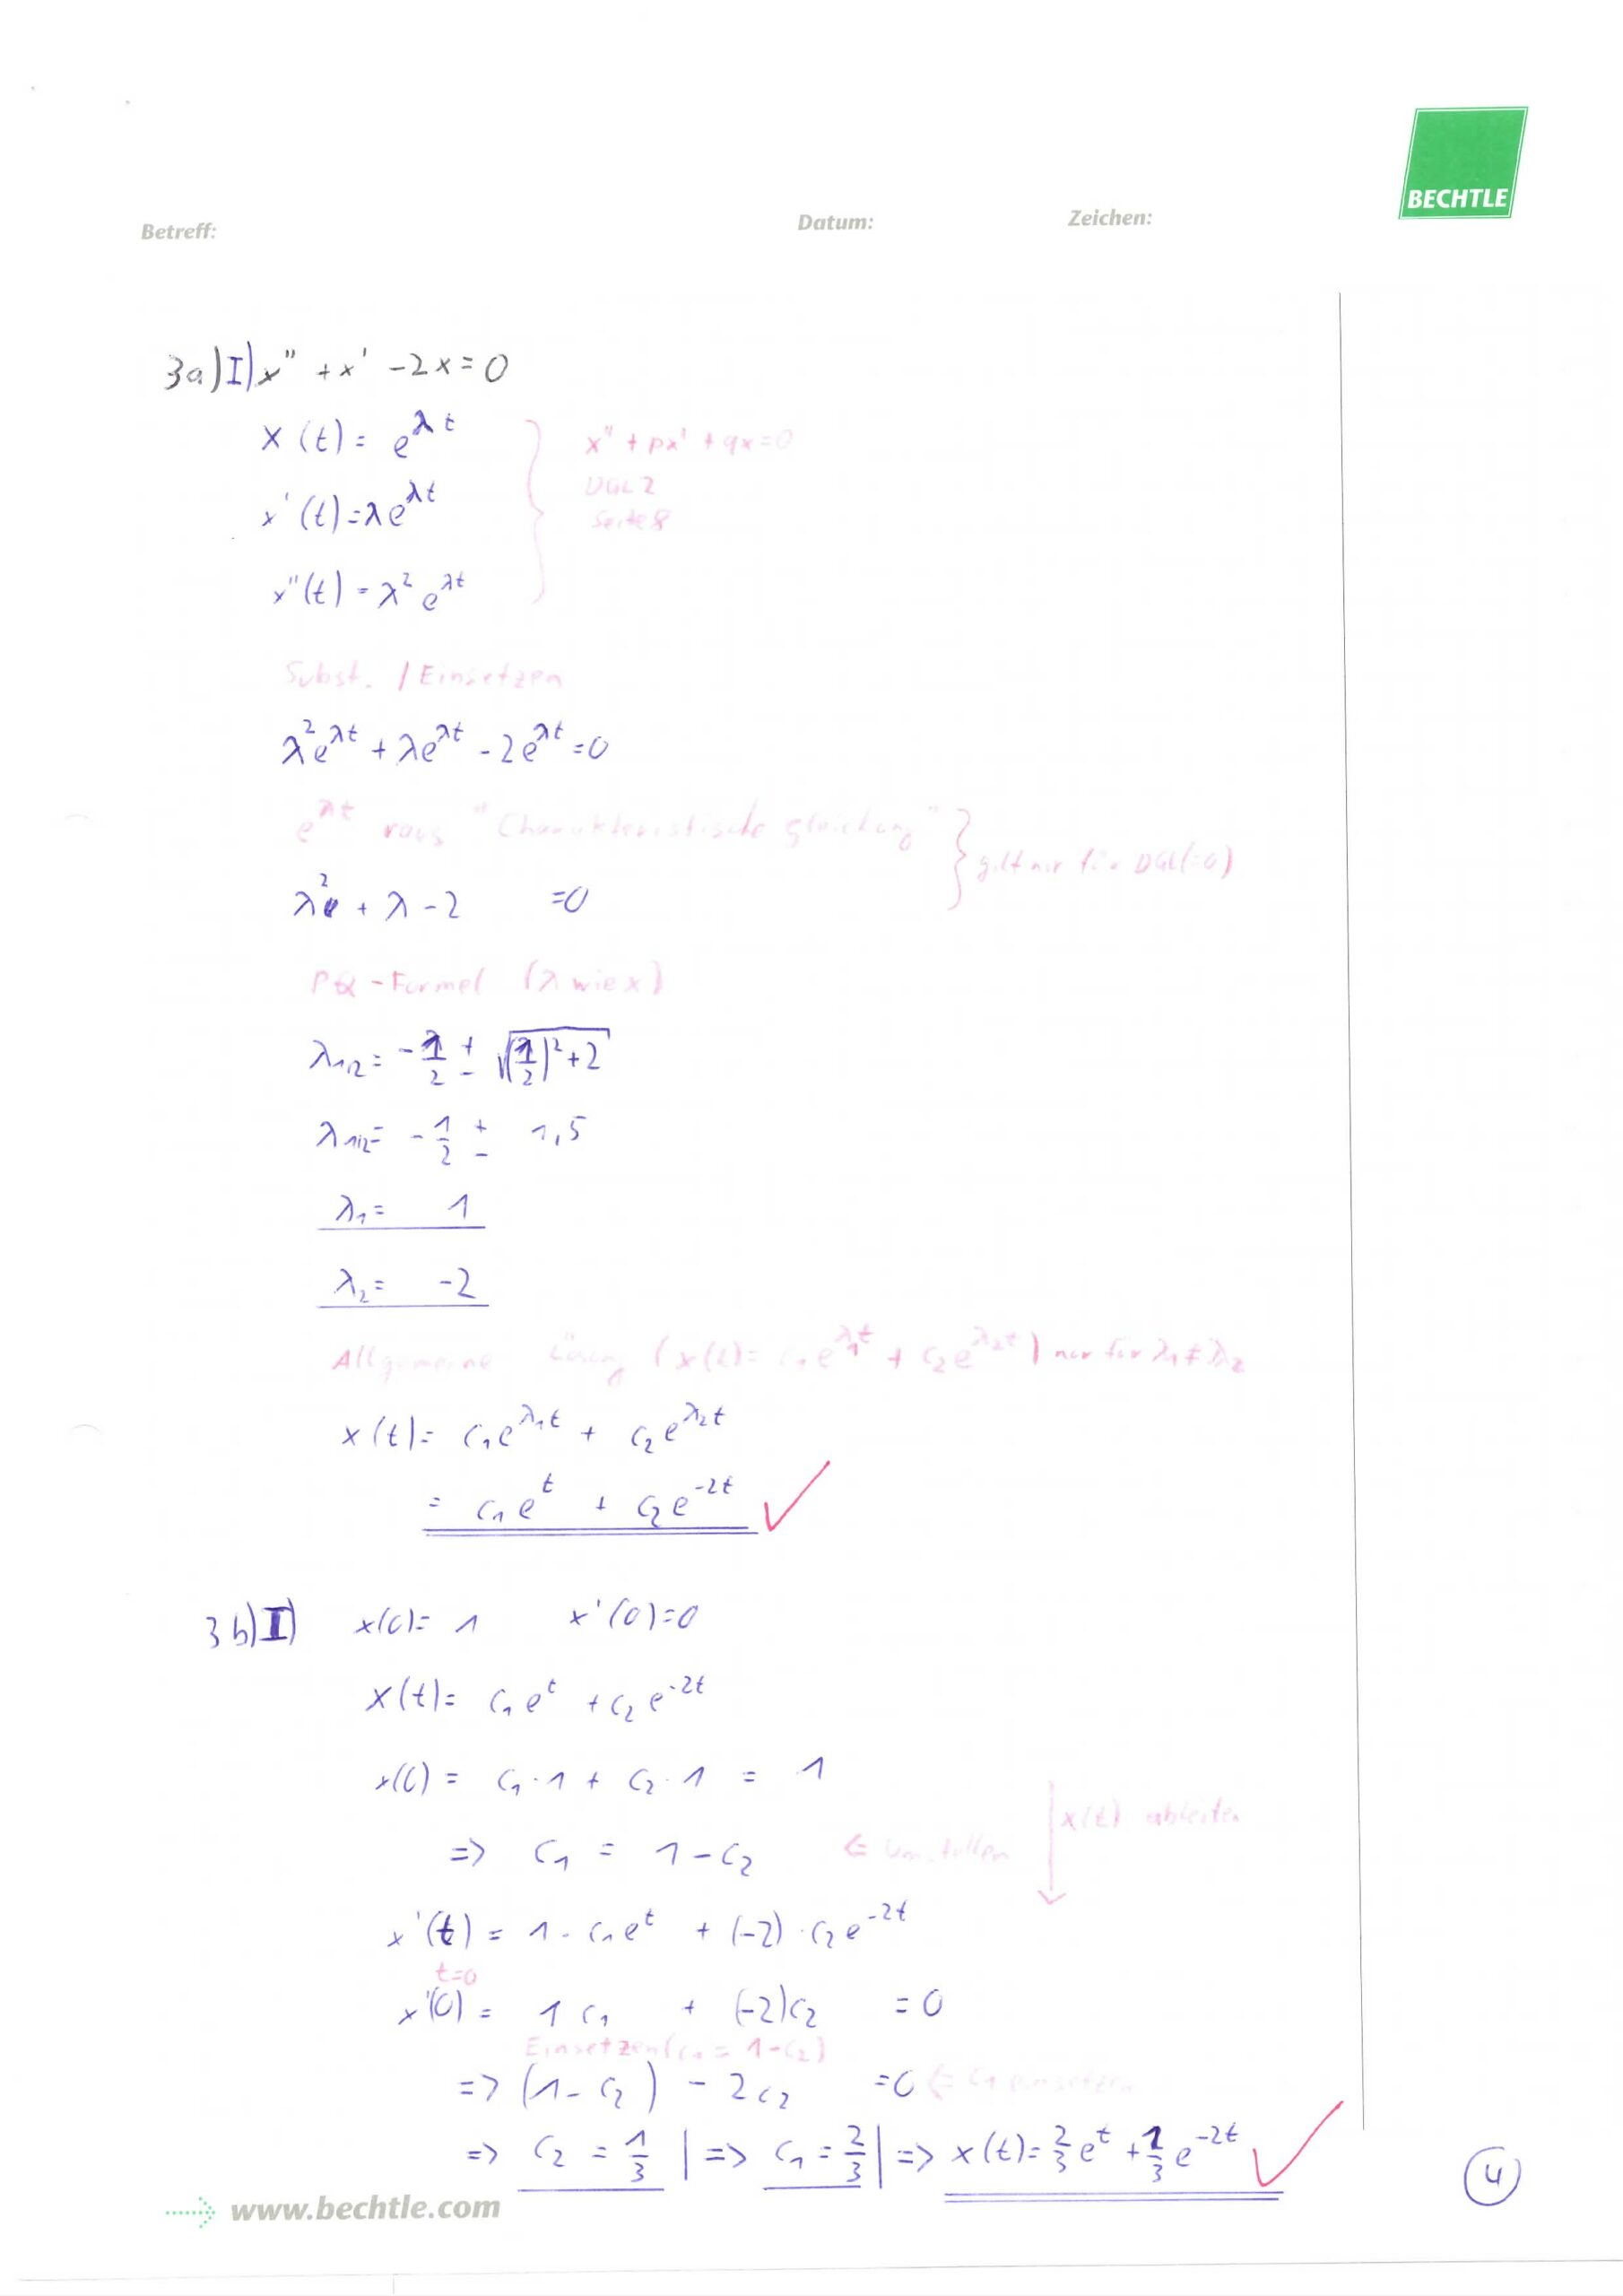 BECHTLE
Betreff: Datum: Zeichen:
3a) I) x'' + x' - 2x = 0
x(t) = e^{λt}
x'' + px' + qx = 0
DGL 2
Seite 8
x'(t) = λe^{λt}
x''(t) = λ² e^{λt}
Subst. / Einsetzen
λ²e^{λt} + λe^{λt} - 2e^{λt} = 0
e^{λt} raus "Charakteristische Gleichung" } gilt nur für DGL(=0)
λ² + λ - 2 = 0
PQ-Formel (λ wie x)
λ_{1/2} = -1/2 ± √((1/2)² + 2)
λ_{1/2} = -1/2 ± 1,5
λ₁ = 1
λ₂ = -2
Allgemeine Lösung (x(t) = c₁e^{λ₁t} + c₂e^{λ₂t}) nur für λ₁ ≠ λ₂
x(t) = c₁e^{λ₁t} + c₂e^{λ₂t}
= c₁e^t + c₂e^{-2t} ✓
3b) I) x(0) = 1 x'(0) = 0
x(t) = c₁e^t + c₂e^{-2t}
x(0) = c₁·1 + c₂·1 = 1
x(t) ableiten
=> c₁ = 1 - c₂ <= Umstellen
x'(t) = 1·c₁e^t + (-2)·c₂e^{-2t}
t=0
x'(0) = 1c₁ + (-2)c₂ = 0
Einsetzen (c₁ = 1-c₂)
=> (1 - c₂) - 2c₂ = 0 <= c₁ einsetzen
=> c₂ = 1/3 | => c₁ = 2/3 | => x(t) = 2/3 e^t + 1/3 e^{-2t} ✓
4
www.bechtle.com